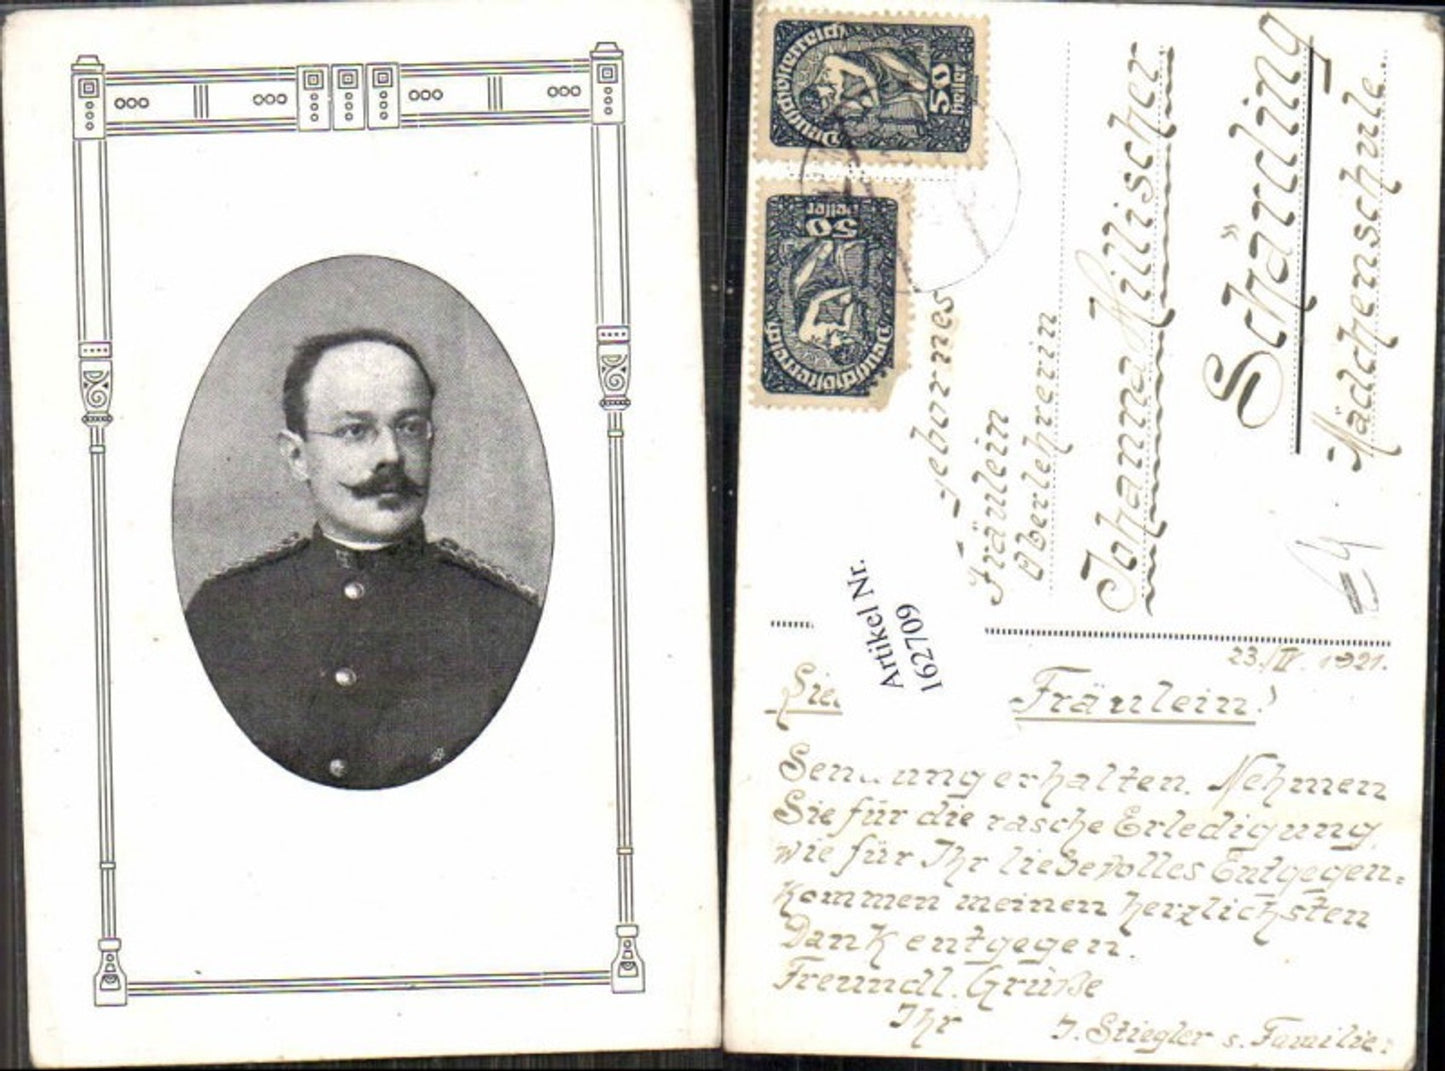 Deutschösterreich
50
Heller
Deutschösterreich
50
Heller
Fräulein
Oberlehrerin
Johanna Hillischer
Schärding
Mädchenschule.
Artikel Nr.
162709
23./IV. 1921.
Fräulein!
erhalten. Nehmen
Sie für die rasche Erledigung,
wie für Ihr liebevolles Entgegen-
kommen meinen herzlichsten
Dank entgegen.
Freundl. Grüße
Ihr J. Stiegler s. Familie.